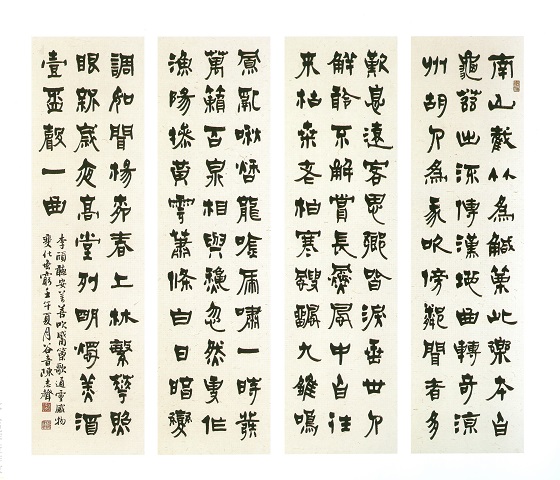 南山截竹為觱篥此樂本自
龜茲出流傳漢地曲轉奇涼
州胡人為我吹傍鄰聞者多
歎息遠客思鄉皆淚垂世人
解聆不解賞長飆風中自往
來枯桑老柏寒颼飀九雛鳴
鳳亂啾啾龍吟虎嘯一時發
萬籟百泉相與秋忽然更作
漁陽摻黃雲蕭條白日暗變
調如聞楊柳春上林繁華照
眼新歲夜高堂列明燭美酒
壹盃聲一曲
李頎聽安万善吹觱篥歌通靈感物
變化無窮壬午夏月谷音陳志聲